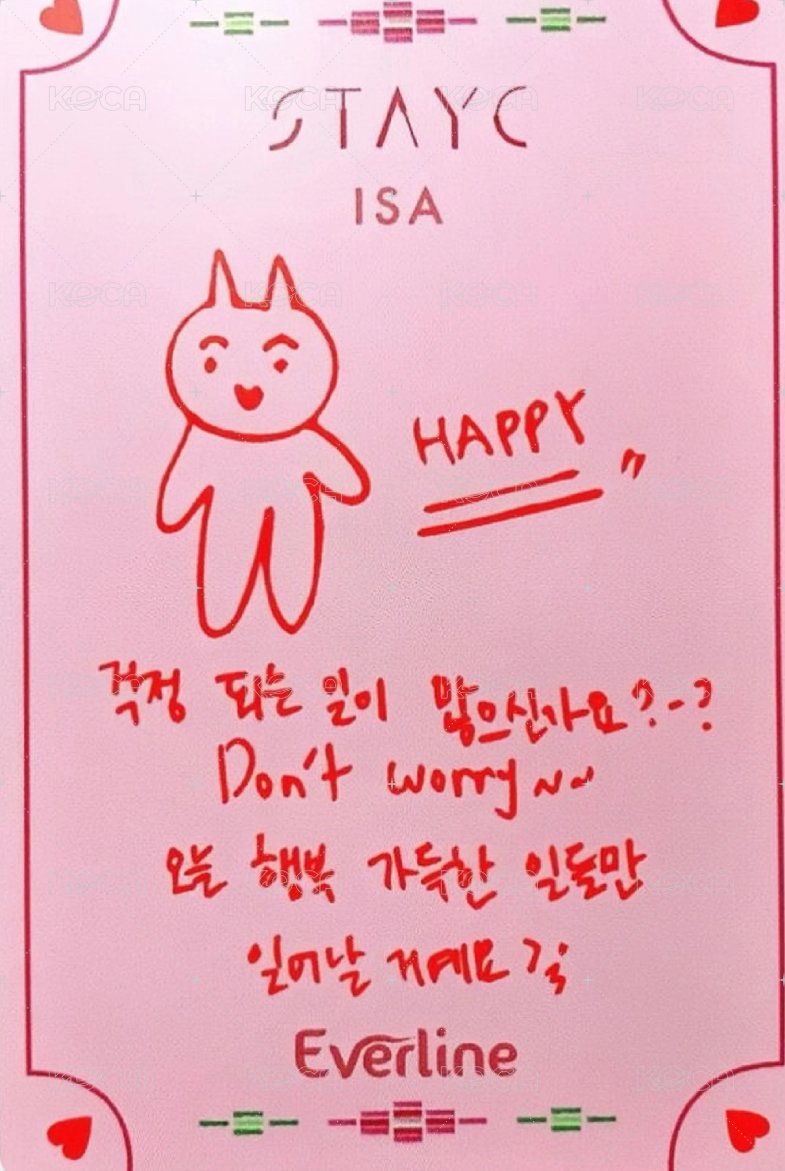 STAYC
ISA
HAPPY "
걱정 되는 일이 많으신가요?-?
Don't worry~~
오늘 행복 가득한 일들만
일어날 거예요
Everline
KOCA